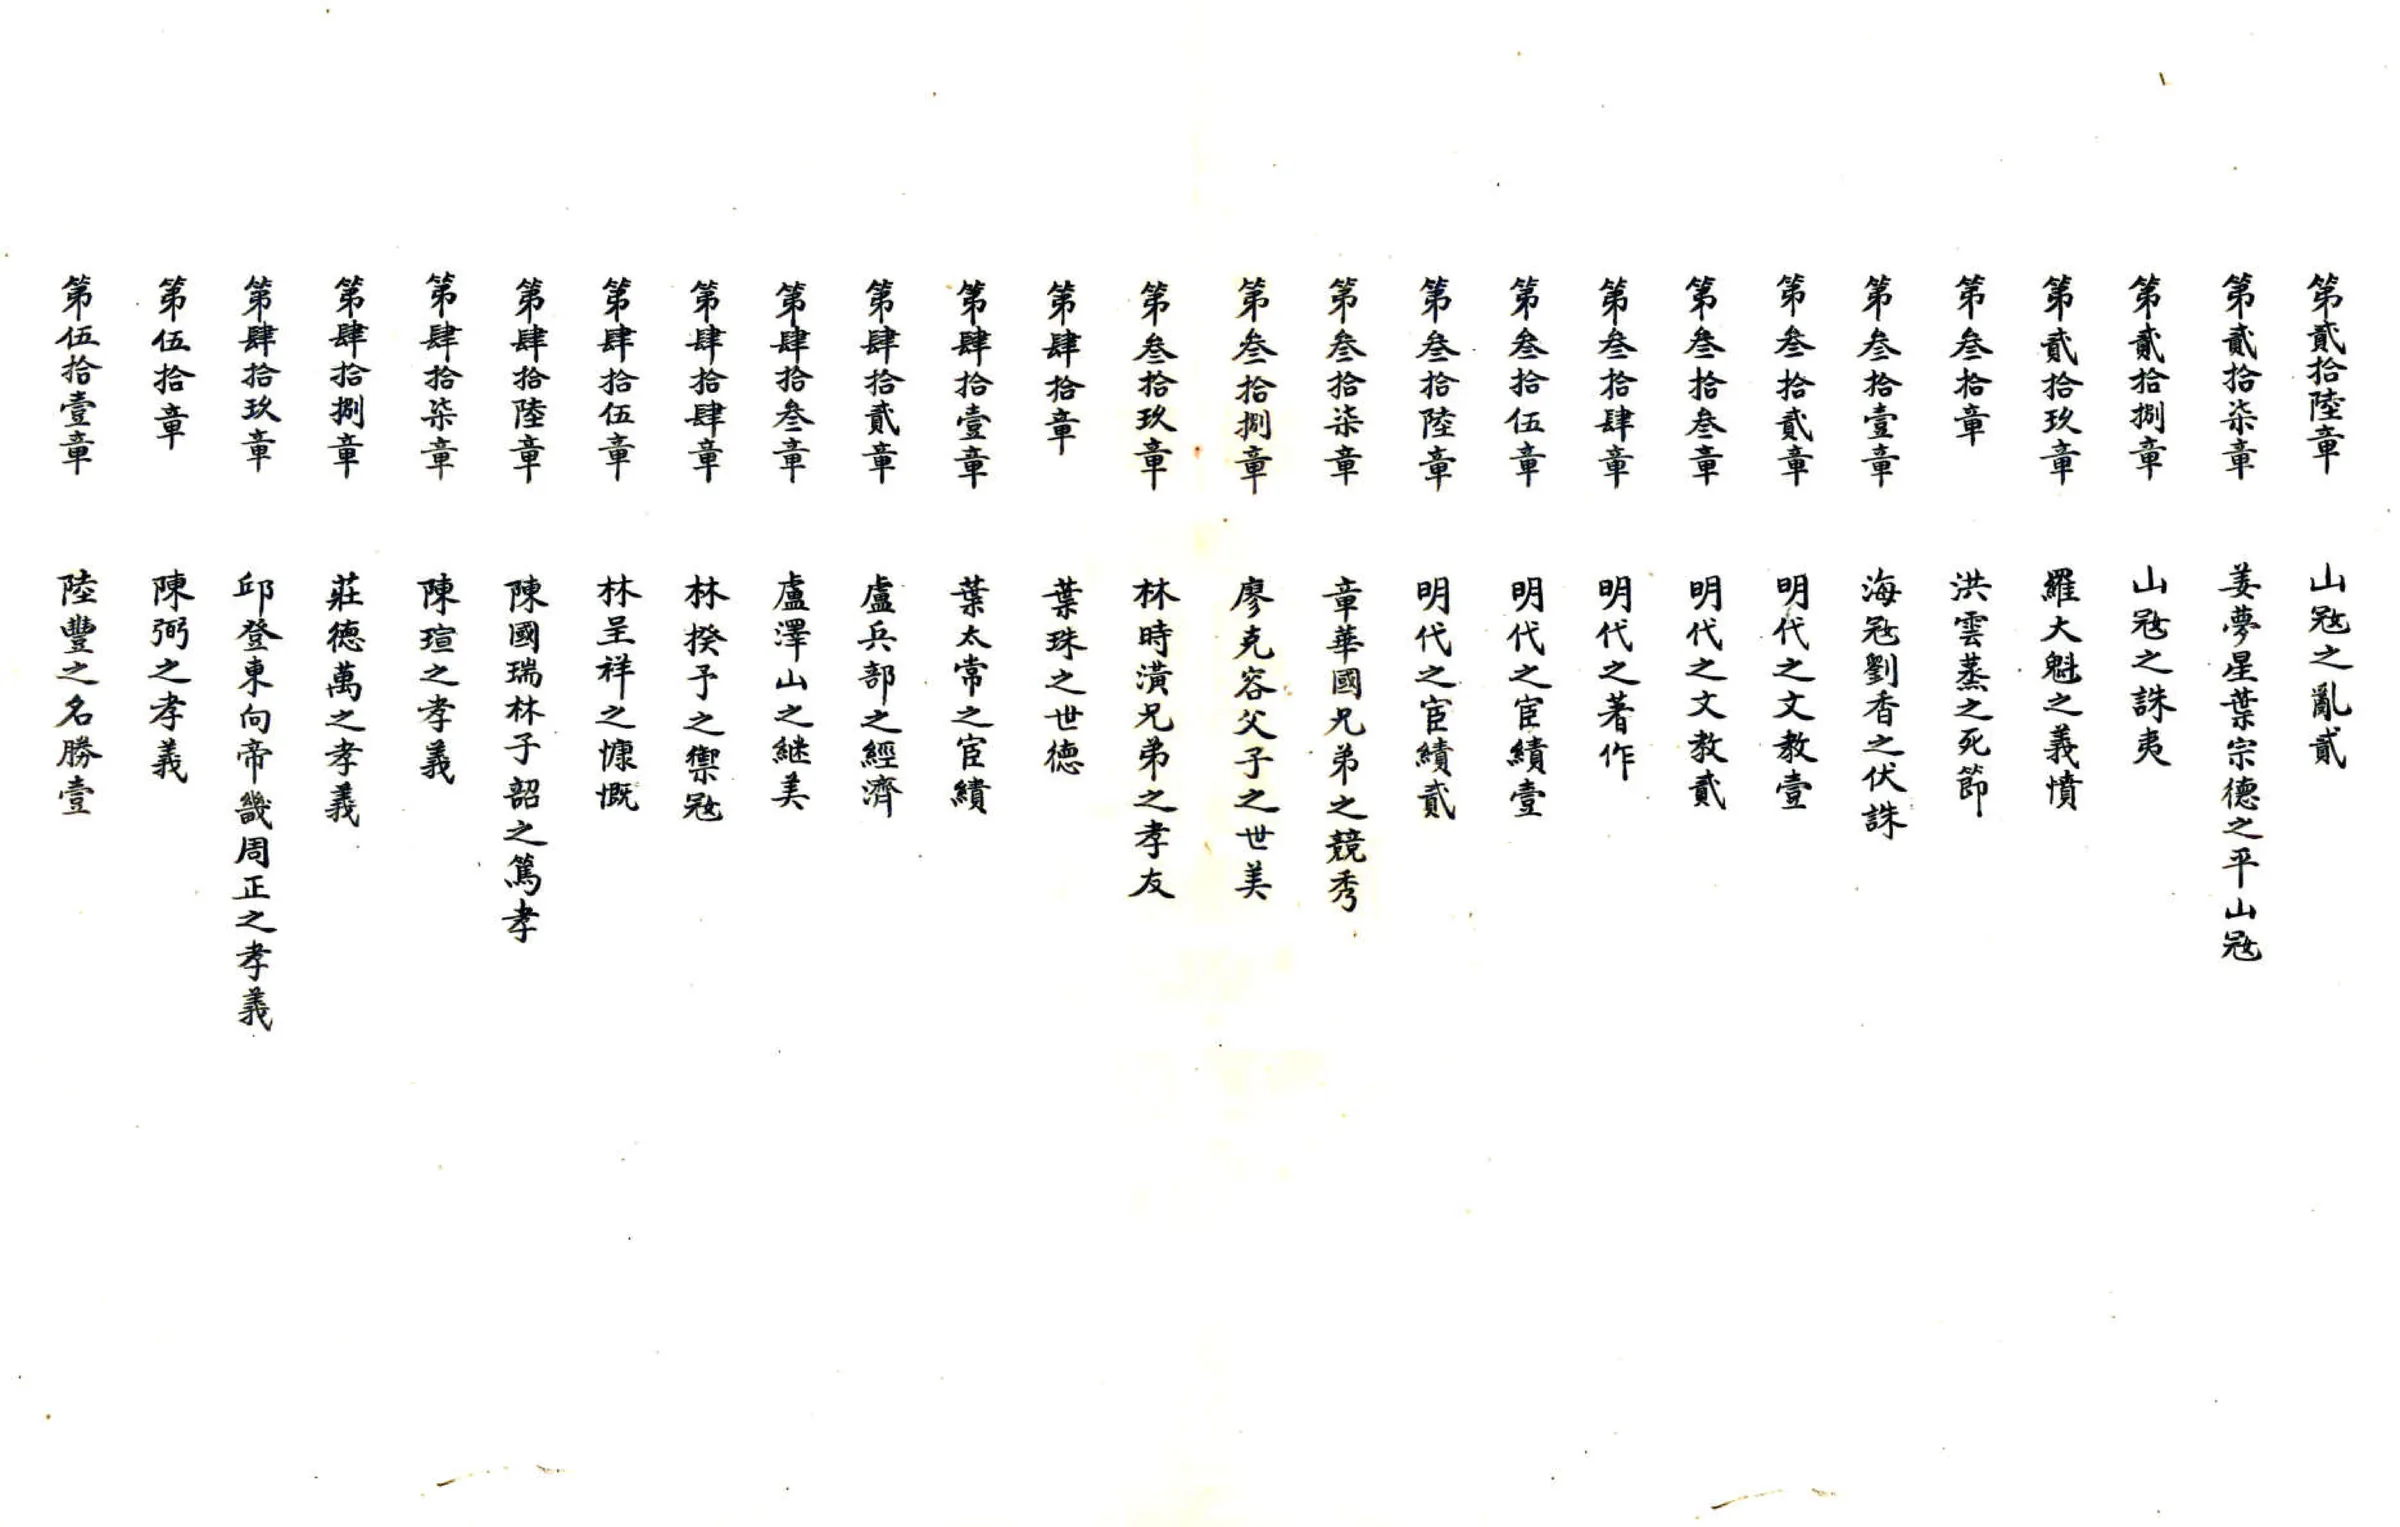 第貳拾陸章 山寇之亂貳
第貳拾柒章 姜夢星葉宗德之平山寇
第貳拾捌章 山寇之誅夷
第貳拾玖章 羅大魁之義憤
第叁拾章 洪雲蒸之死節
第叁拾壹章 海寇劉香之伏誅
第叁拾貳章 明代之文教壹
第叁拾叁章 明代之文教貳
第叁拾肆章 明代之著作
第叁拾伍章 明代之宦績壹
第叁拾陸章 明代之宦績貳
第叁拾柒章 章華國兄弟之競秀
第叁拾捌章 廖克容父子之世美
第叁拾玖章 林時潢兄弟之孝友
第肆拾章 葉珠之世德
第肆拾壹章 葉太常之宦績
第肆拾貳章 盧兵部之經濟
第肆拾叁章 盧澤山之継美
第肆拾肆章 林揆予之禦寇
第肆拾伍章 林呈祥之慷慨
第肆拾陸章 陳國瑞林子韶之篤孝
第肆拾柒章 陳瑄之孝義
第肆拾捌章 莊德萬之孝義
第肆拾玖章 邱登東向帝畿周正之孝義
第伍拾章 陳弼之孝義
第伍拾壹章 陸豐之名勝壹